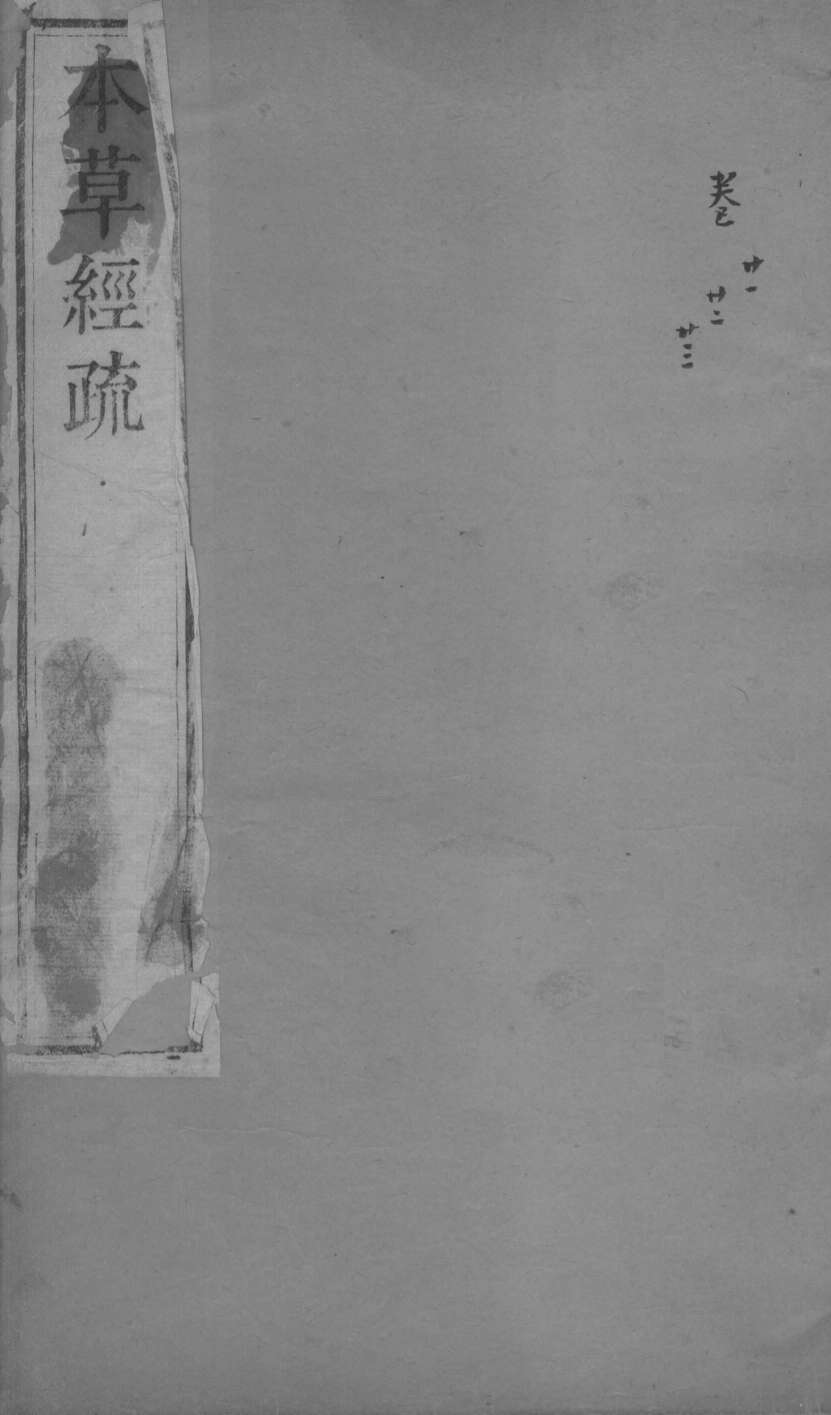 卷
廿一
廿二
廿三
本草經疏